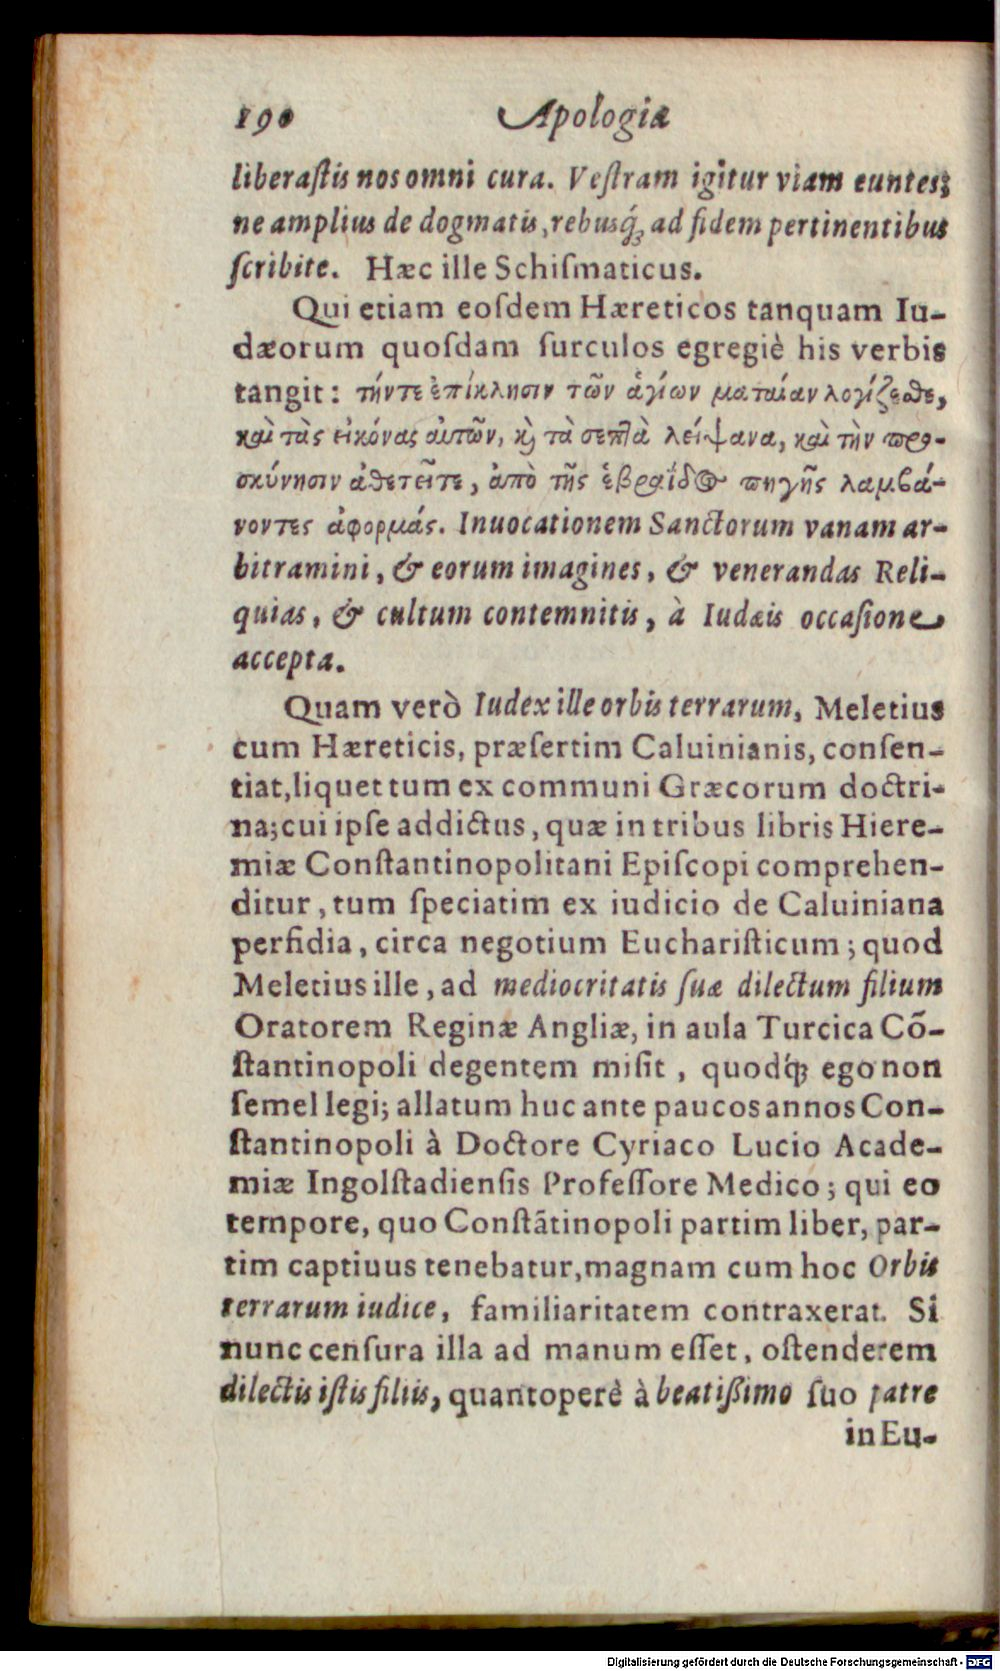 190 Apologiæ
liberaſtis nos omni cura. Veſtram igitur viam euntes;
ne amplius de dogmatis, rebusq́; ad fidem pertinentibus
ſcribite. Hæc ille Schiſmaticus.
Qui etiam eoſdem Hæreticos tanquam Iu-
dæorum quoſdam ſurculos egregiè his verbis
tangit: τήντε ἐπίκλησιν τῶν ἁγίων ματαίαν λογίζεσθε,
καὶ τὰς εἰκόνας αὐτῶν, κὶ τὰ σεπτὰ λείψανα, καὶ τὴν προ-
σκύνησιν ἀθετεῖτε, ἀπὸ τῆς ἑβραΐδος πηγῆς λαμβά-
νοντες ἀφορμάς. Inuocationem Sanctorum vanam ar-
bitramini, & eorum imagines, & venerandas Reli-
quias, & cultum contemnitis, à Iudæis occaſione
accepta.
Quam verò Iudex ille orbis terrarum, Meletius
cum Hæreticis, præſertim Caluinianis, conſen-
tiat, liquet tum ex communi Græcorum doctri-
na; cui ipſe addictus, quæ in tribus libris Hiere-
miæ Conſtantinopolitani Epiſcopi comprehen-
ditur, tum ſpeciatim ex iudicio de Caluiniana
perfidia, circa negotium Euchariſticum; quod
Meletius ille, ad mediocritatis ſuæ dilectum filium
Oratorem Reginæ Angliæ, in aula Turcica Cõ-
ſtantinopoli degentem miſit, quodq́; ego non
ſemel legi; allatum huc ante paucos annos Con-
ſtantinopoli à Doctore Cyriaco Lucio Acade-
miæ Ingolſtadienſis Profeſſore Medico; qui eo
tempore, quo Conſtãtinopoli partim liber, par-
tim captiuus tenebatur, magnam cum hoc Orbis
terrarum iudice, familiaritatem contraxerat. Si
nunc cenſura illa ad manum eſſet, oſtenderem
dilectis iſtis filiis, quantoperè à beatißimo ſuo patre
in Eu-
Digitalisierung gefördert durch die Deutsche Forschungsgemeinschaft - DFG